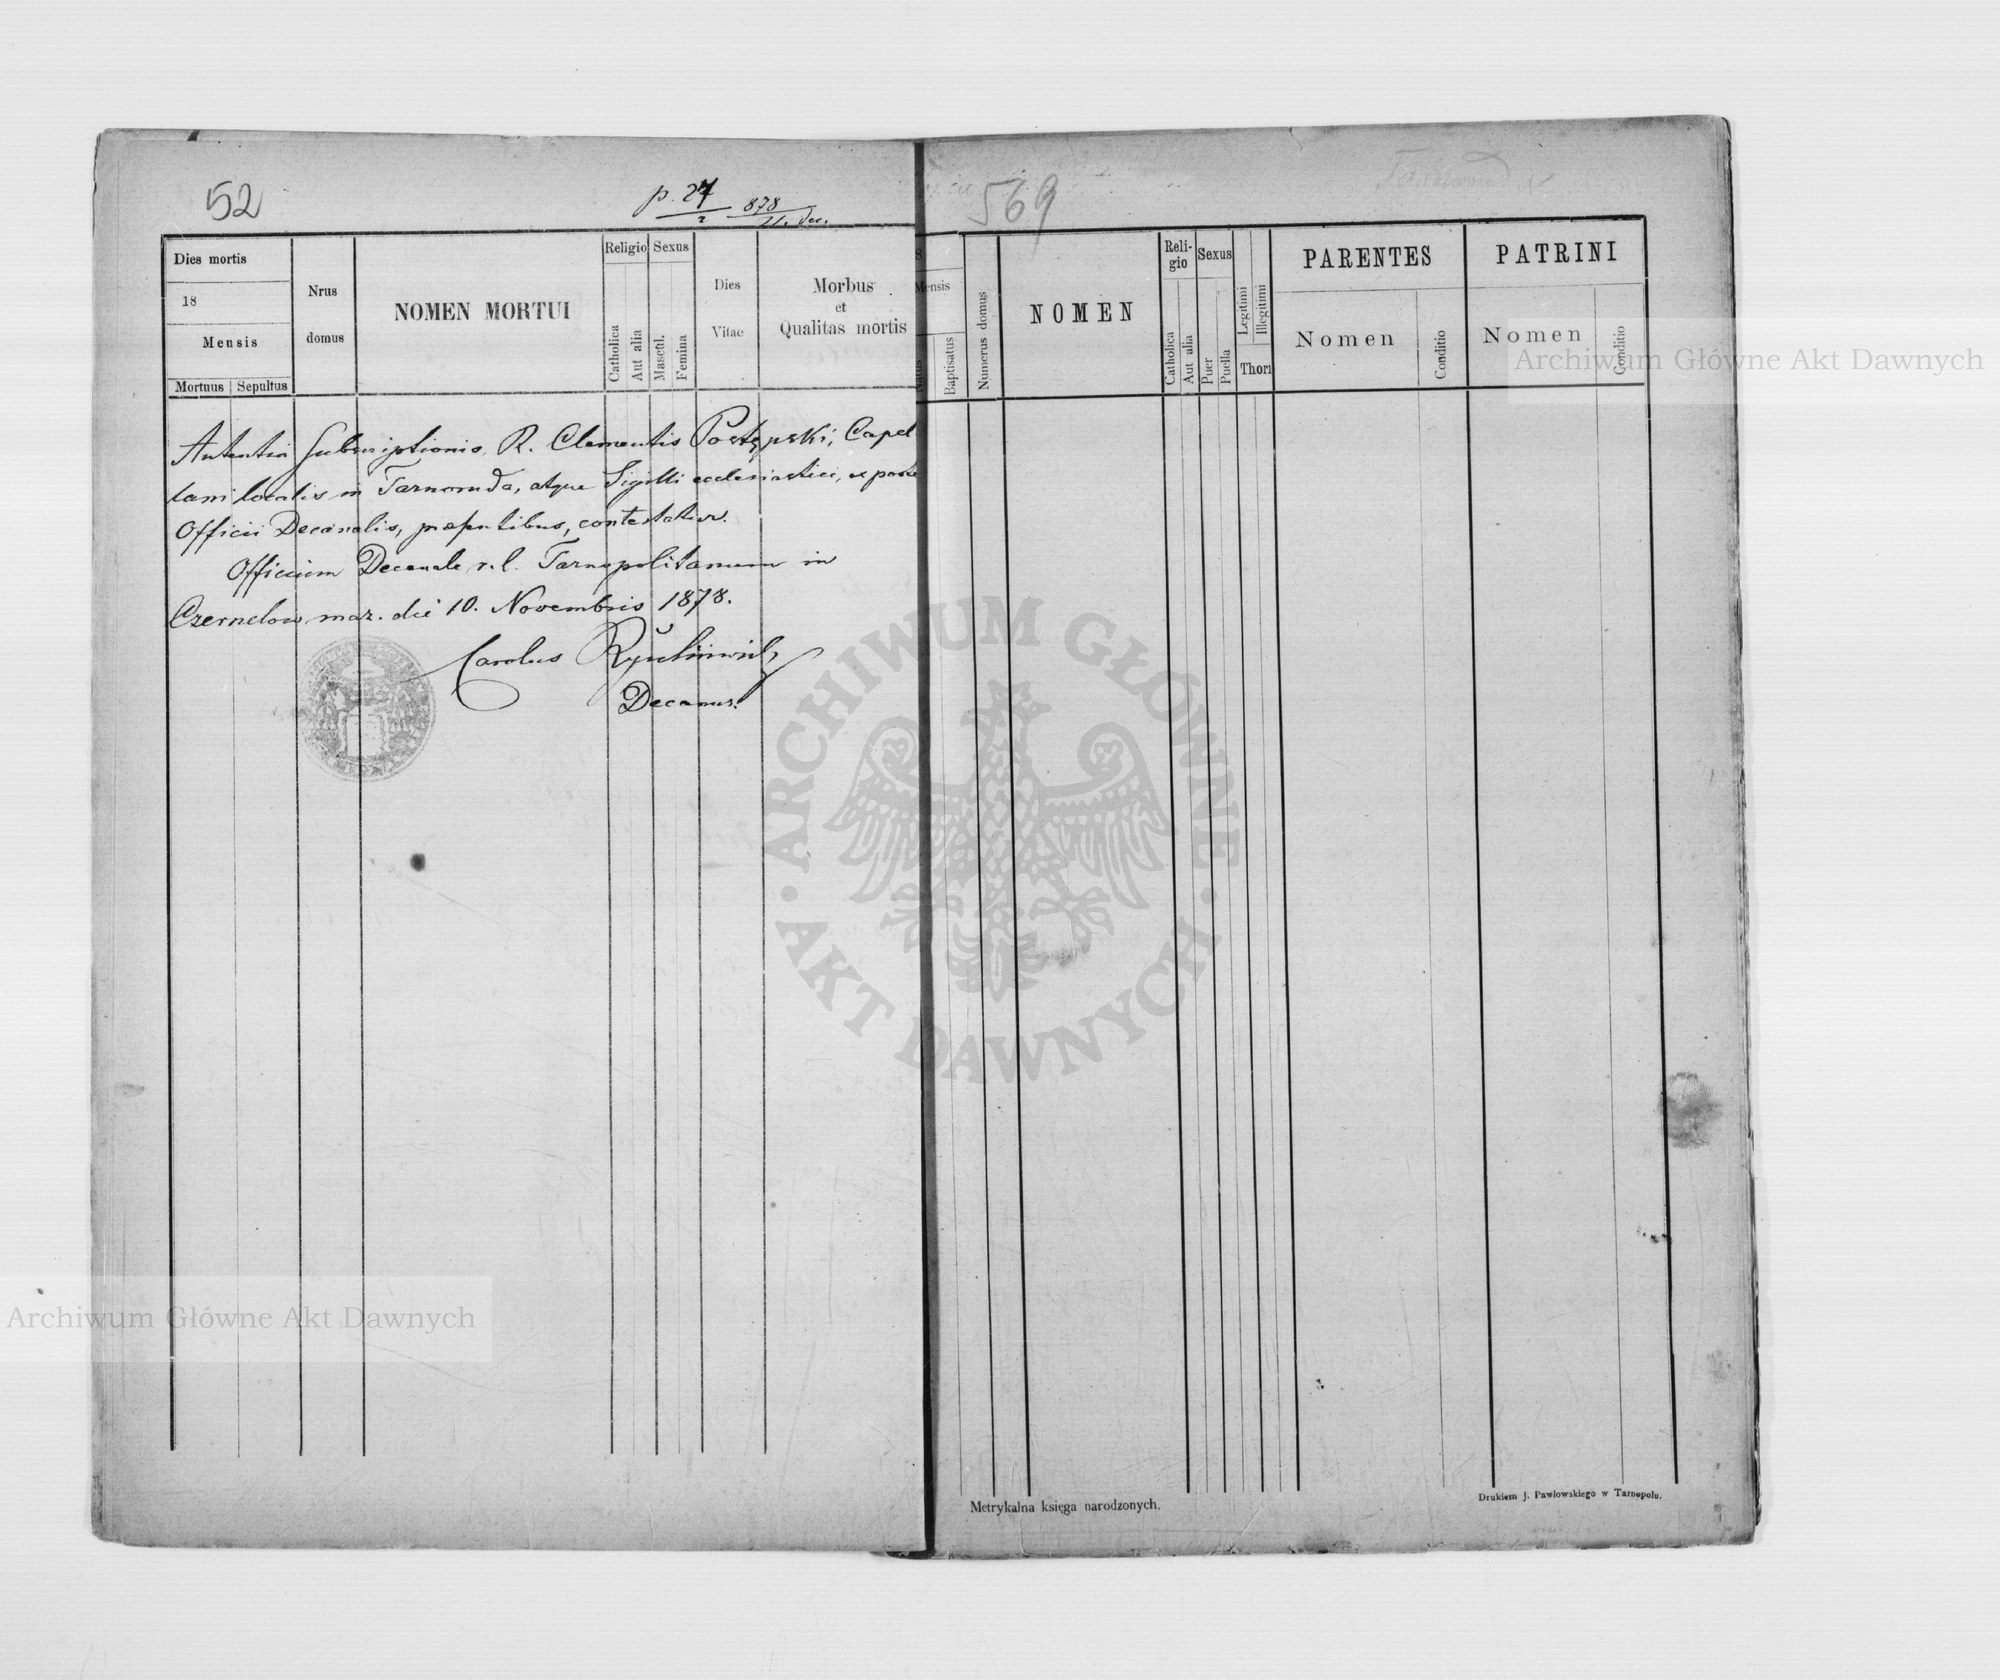 52
p. 27/2 878/21. Dec.
Dies mortis
18
Mensis
Mortuus Sepultus
Nrus
domus
NOMEN MORTUI
Religio
Catholica
Aut alia
Sexus
Mascul.
Femina
Dies
Vitae
Morbus
et
Qualitas mortis
Subscriptionis R. Clementis Postępski, Capel
lani localis in Tarnoruda, atque Sigilli ecclesiastici, ex parte
Officii Decanalis, praesentibus, contestatur.
Officium Decanale r. l. Tarnopolitanum in
Czernelow maz. die 10. Novembris 1878.
Carolus
Decanus.
569
8
Mensis
Natus
Baptisatus
Numerus domus
NOMEN
Reli-
gio
Catholica
Aut alia
Sexus
Puer
Puella
Legitimi
Illegitimi
Thori
PARENTES
Nomen
Conditio
PATRINI
Nomen
Conditio
Metrykalna księga narodzonych.
Drukiem J. Pawłowskiego w Tarnopolu.
Archiwum Główne Akt Dawnych
ARCHIWUM GŁÓWNE
AKT DAWNYCH
Archiwum Główne Akt Dawnych